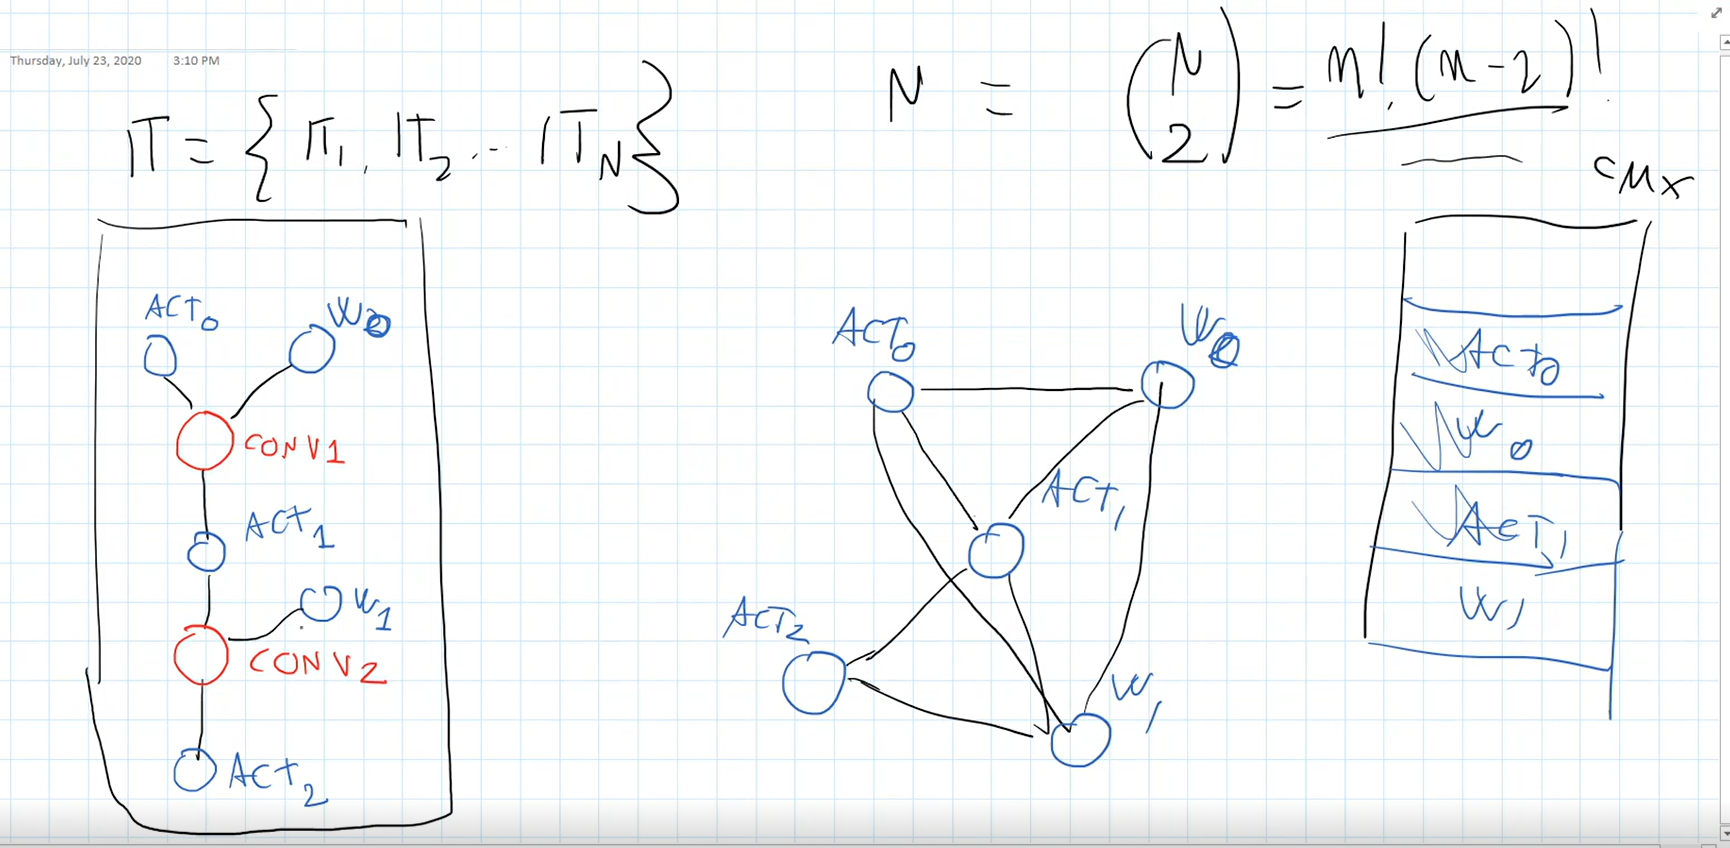 Thursday, July 23, 2020 3:10 PM
π = { π₁, π₂ ... π_N }
N = (N 2) = n!, (n-2)!
CMX
ACT₀ W₀
CONV1
ACT₁
W₁
CONV2
ACT₂
ACT₀ W₀
ACT₁
ACT₂
W₁
ACT₀
W₀
ACT₁
W₁